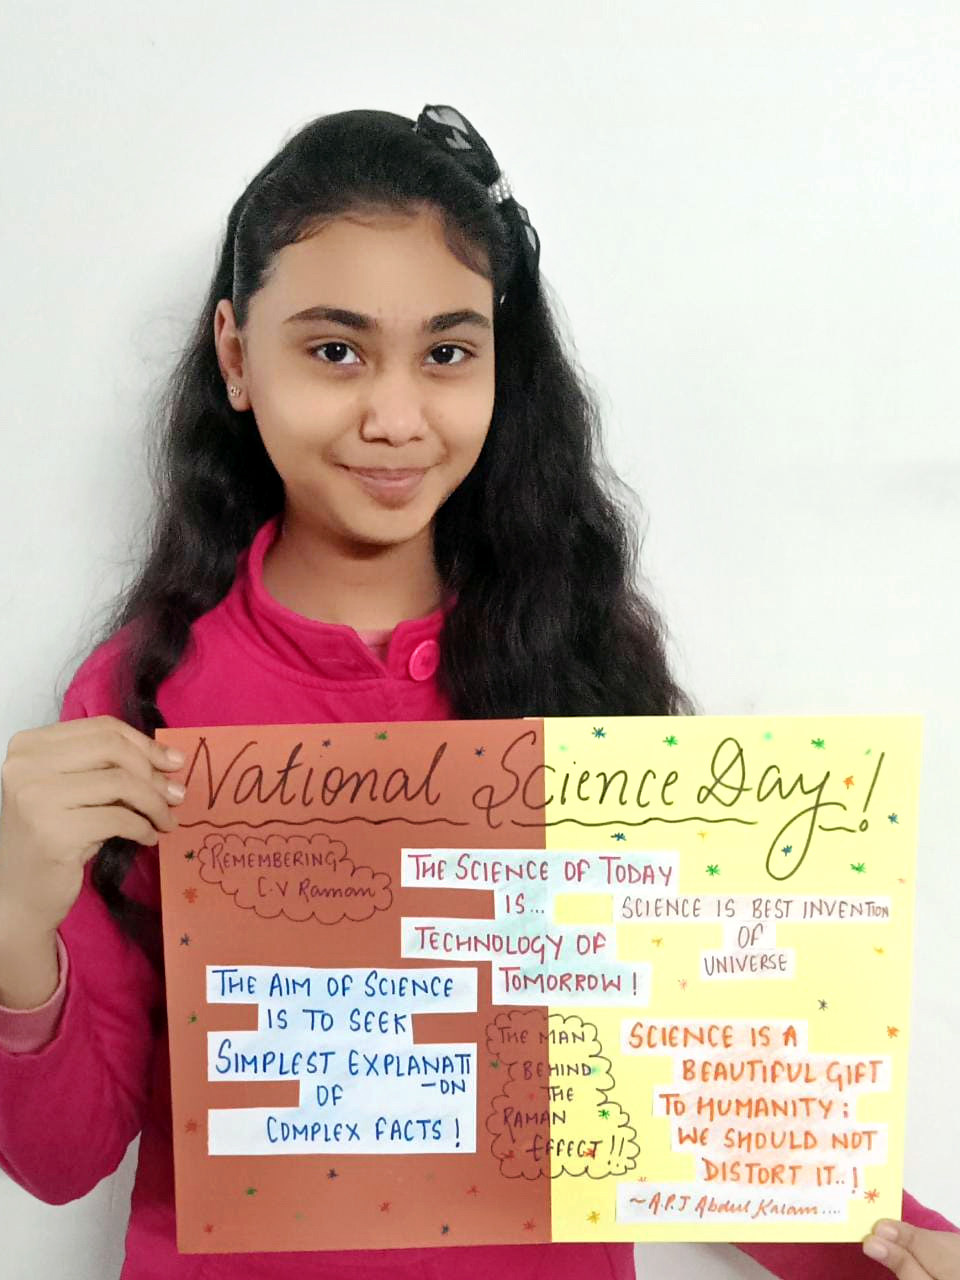 National Science Day!
REMEMBERING
C.V Raman
THE SCIENCE OF TODAY
IS...
TECHNOLOGY OF
TOMORROW!
SCIENCE IS BEST INVENTION
OF
UNIVERSE
THE AIM OF SCIENCE
IS TO SEEK
SIMPLEST EXPLANATI
-ON
OF
COMPLEX FACTS!
THE MAN
BEHIND
THE
RAMAN
EFFECT!!
SCIENCE IS A
BEAUTIFUL GIFT
TO HUMANITY;
WE SHOULD NOT
DISTORT IT..!
~A.P.J Abdul Kalam....